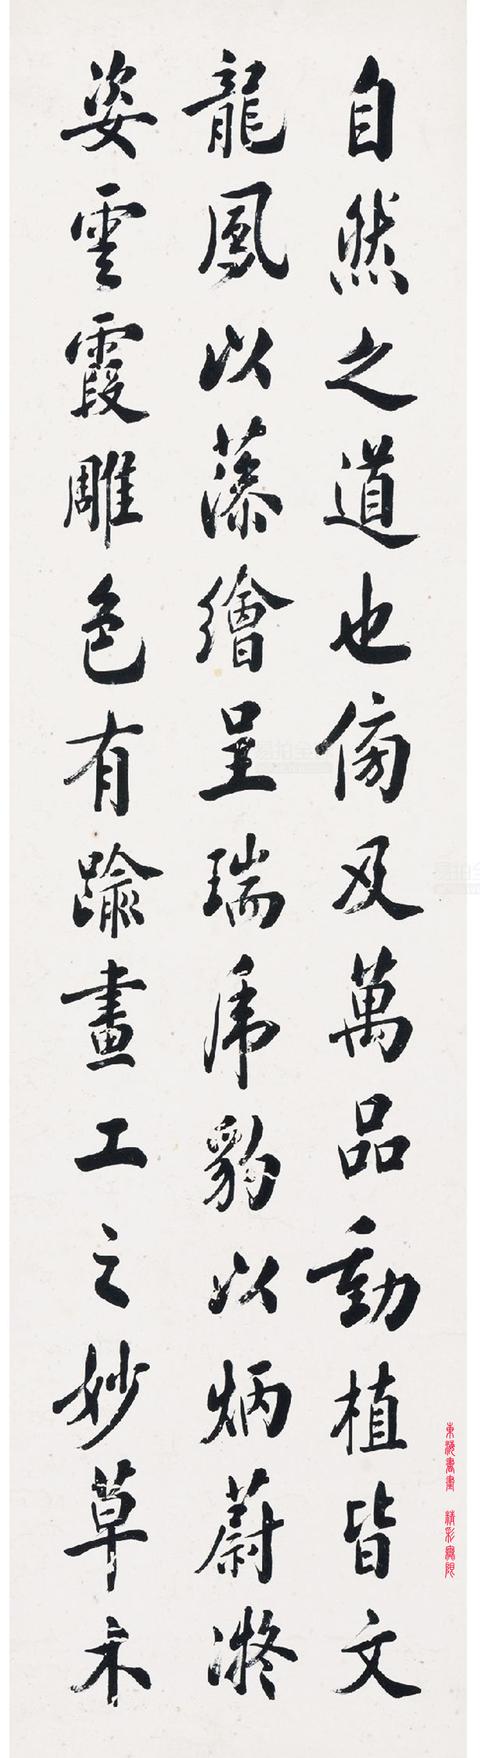 自然之道也傍及萬品動植皆文
龍鳳以藻繪呈瑞虎豹以炳蔚凝
姿雲霞雕色有踰畫工之妙草木
東海書畫 精彩無限
易拍全球
易拍全